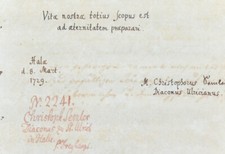 Vitæ nostræ totius scopus est
ad æternitatem præparari
Halæ
d. 8. Mart.
1729.
M. Christophorus
Diaconus Ulricianus.
Nr. 2241.
Christoph Semler
Diaconus zu St. Ulrich
in Halle